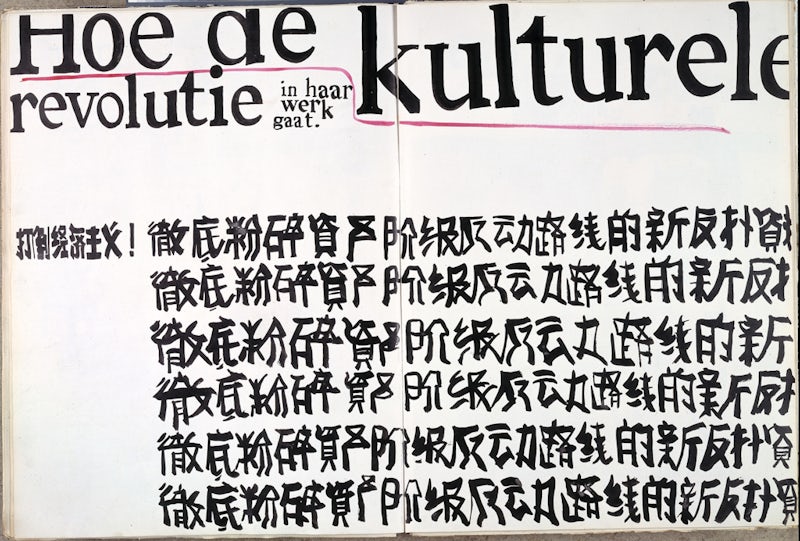 Hoe de kulturele
revolutie
in haar
werk
gaat.
打倒经济主义! 徹底粉碎資产阶级反动路线的新反扑資
徹底粉碎資产阶级反动路线的新反
徹底粉碎資产阶级反动路线的新
徹底粉碎資产阶级反动路线的新反
徹底粉碎資产阶级反动路线的新反扑資
徹底粉碎資产阶级反动路线的新反扑資